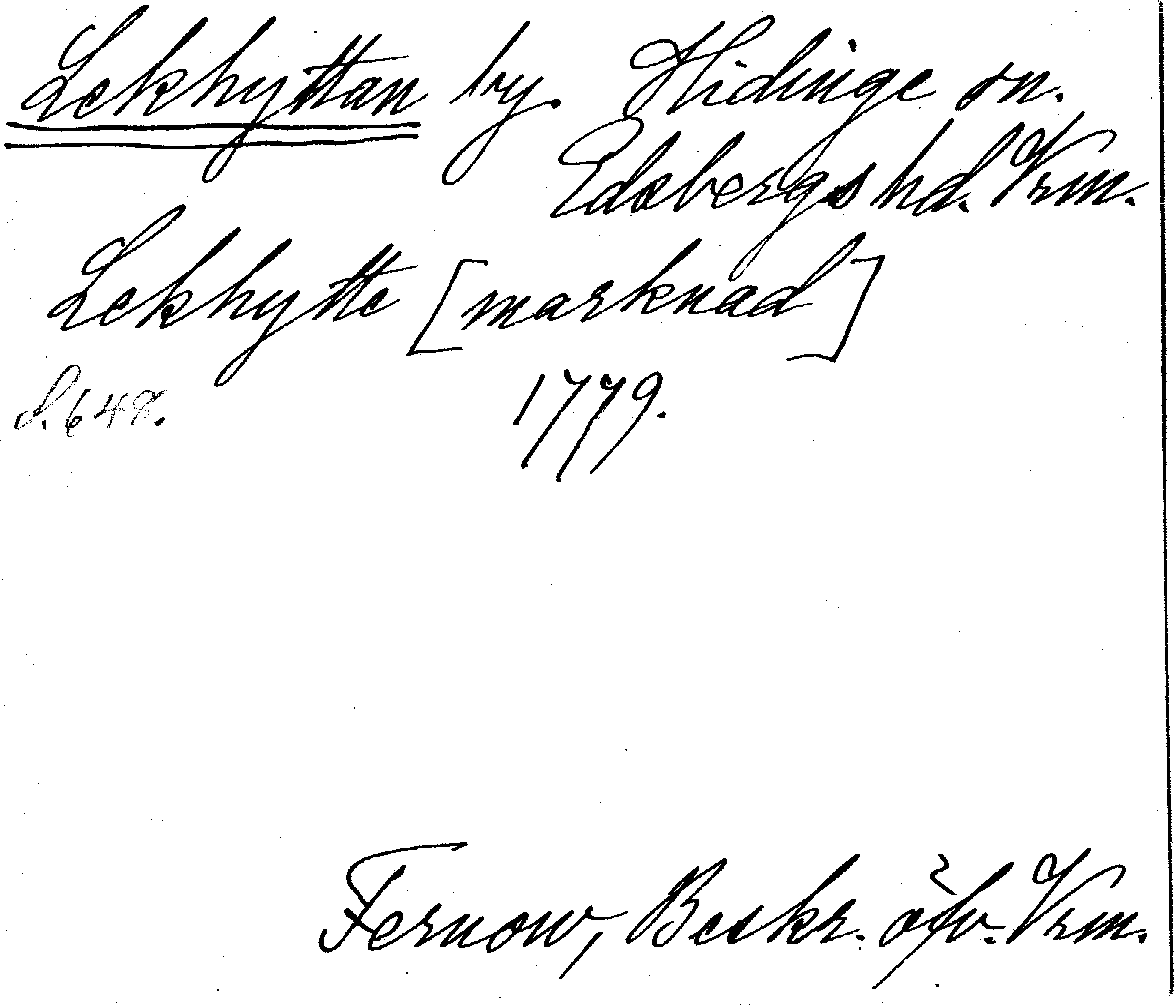 Lekhyttan by. Hidinge sn.
Edsbergs hd. Vrm.
Lekhytte [marknad]
S. 648. 1779.
Fernow, Beskr. öfv. Vrm.